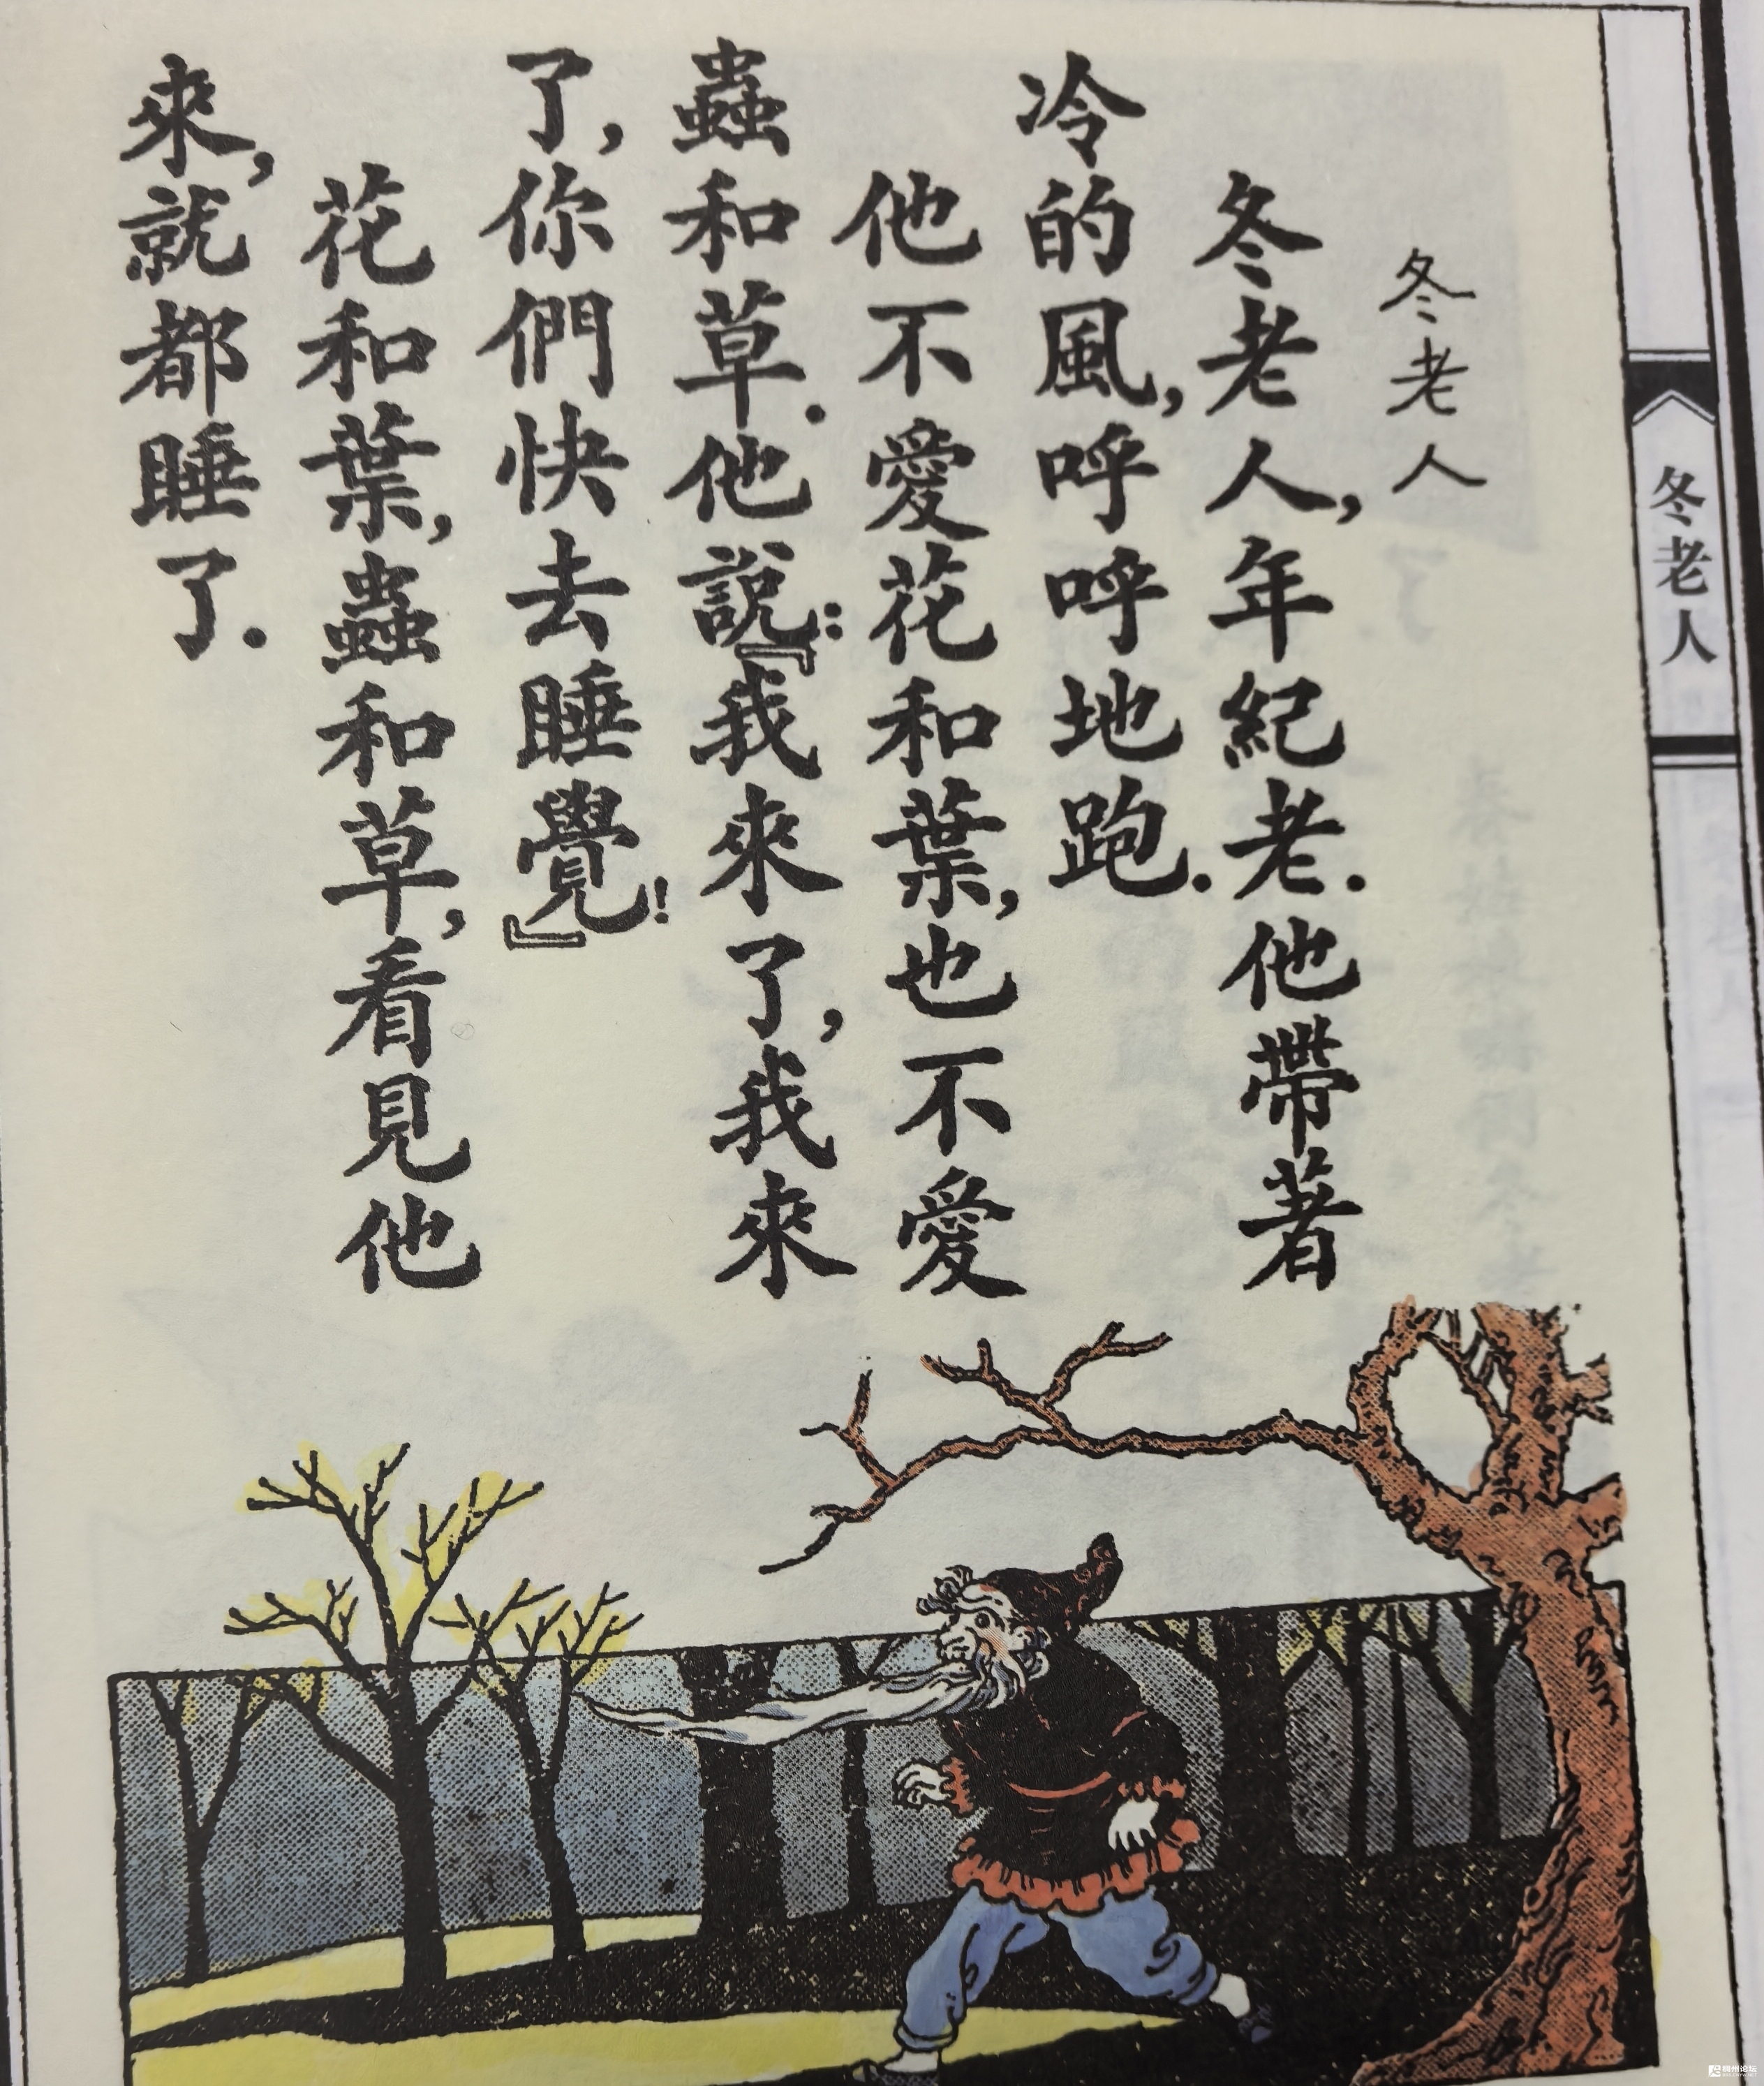 冬老人
冬老人
冬老人，年紀老．他帶著
冷的風，呼呼地跑．
他不愛花和葉，也不愛
蟲和草．他說：『我來了，我來
了，你們快去睡覺！』
花和葉，蟲和草，看見他
來，就都睡了．